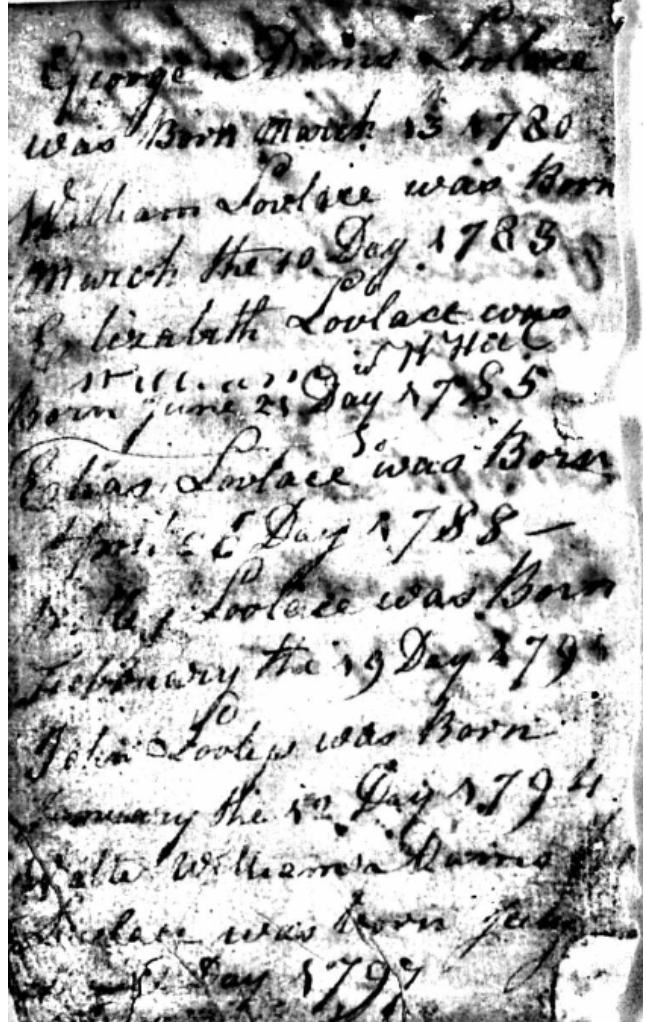 George Lovlace
was Born March 13 1780
William Lovlace was Born
March the 10 Day 1783
Elizabeth Lovlace was
Born June 21 Day 1785
Elias Lovlace was Born
April Day 1788 —
Lovlace was Born
February the 19 Day 179
John Lovlace was Born
January the 12 Day 1794
William Adams
was born July
Day 1797